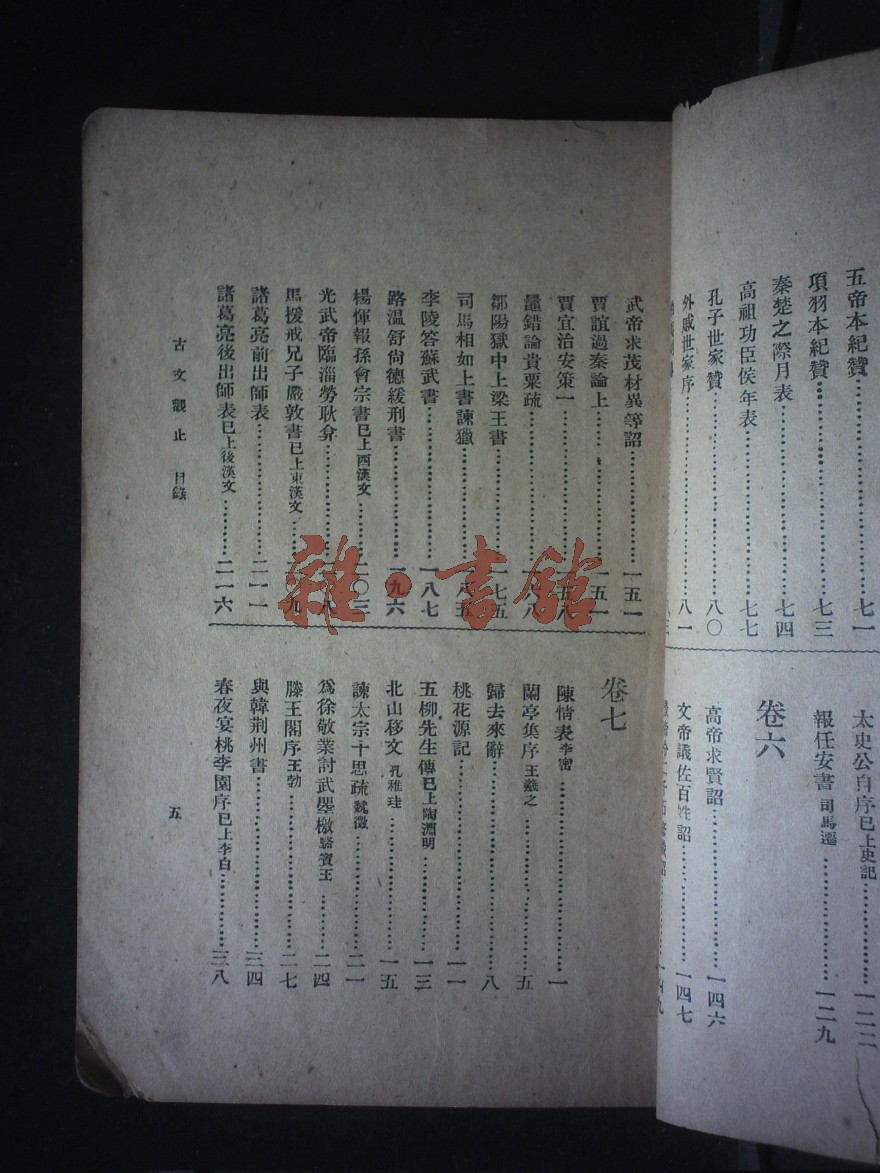 五帝本紀贊……七一
項羽本紀贊……七三
秦楚之際月表……七四
高祖功臣侯年表……七七
孔子世家贊……八〇
外戚世家序……八一
太史公自序已上史記……一二二
報任安書司馬遷……一二九
卷六
高帝求賢詔……一四六
文帝議佐百姓詔……一四七
一四九
武帝求茂材異等詔……一五一
賈誼過秦論上……一五一
賈宜治安策一……一五八
鼂錯論貴粟疏……
鄒陽獄中上梁王書……一七五
司馬相如上書諫獵……一八五
李陵答蘇武書……一八七
路温舒尚德緩刑書……一九六
楊惲報孫會宗書已上西漢文……二〇三
光武帝臨淄勞耿弇……
馬援戒兄子嚴敦書已上東漢文……
諸葛亮前出師表……二一一
諸葛亮後出師表已上後漢文……二一六
卷七
陳情表李密……一
蘭亭集序王羲之……五
歸去來辭……八
桃花源記……一一
五柳先生傳已上陶淵明……一三
北山移文孔稚珪……一五
諫太宗十思疏魏徵……二一
爲徐敬業討武曌檄駱賓王……二四
滕王閣序王勃……二七
與韓荆州書……三四
春夜宴桃李園序已上李白……三八
古文觀止 目錄
五
雜·書館